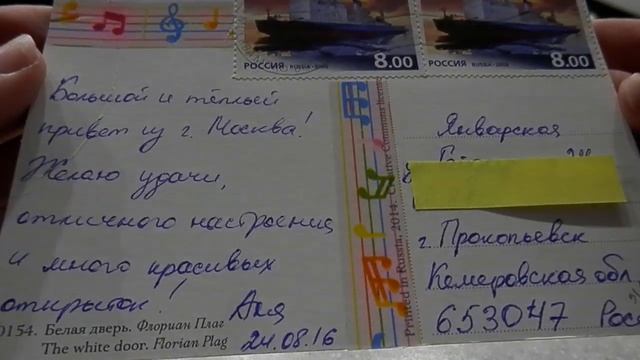 РОССИЯ RUSSIA · 2009 8.00
РОССИЯ RUSSIA · 2009 8.00
Большой и тёплый
привет из г. Москва!
Желаю удачи,
отличного настроения
и много красивых
открыток!
Аня
24.08.16
0154. Белая дверь. Флориан Плаг
The white door. Florian Plag
Printed in Russia, 2014. Creative Commons
Январская
г. Прокопьевск
Кемеровская обл
653047